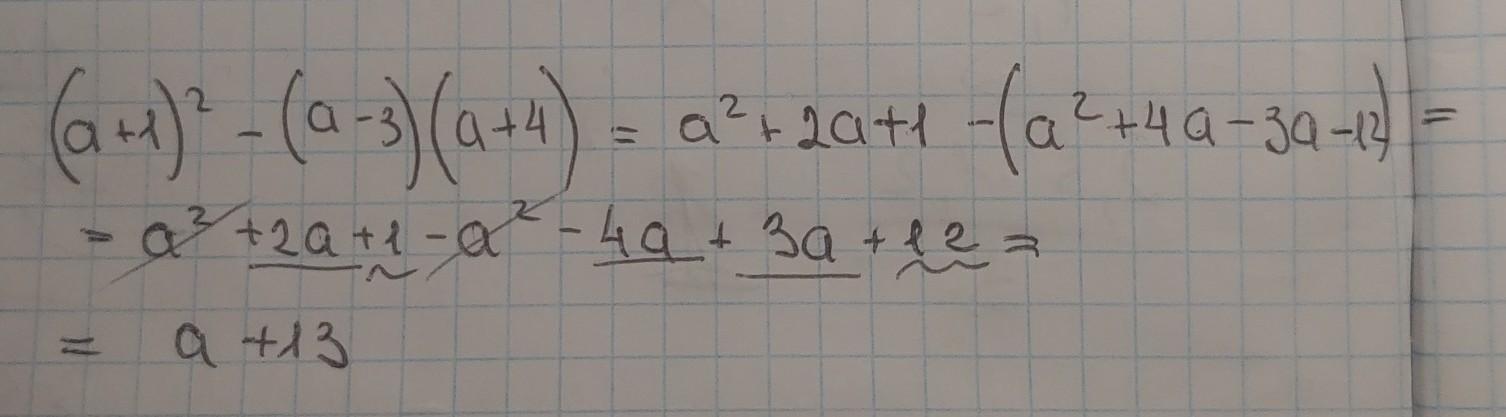 (a+1)² - (a-3)(a+4) = a² + 2a+1 - (a²+4a-3a-12) =
= a² +2a+1 - a² - 4a + 3a + 12 =
= a +13